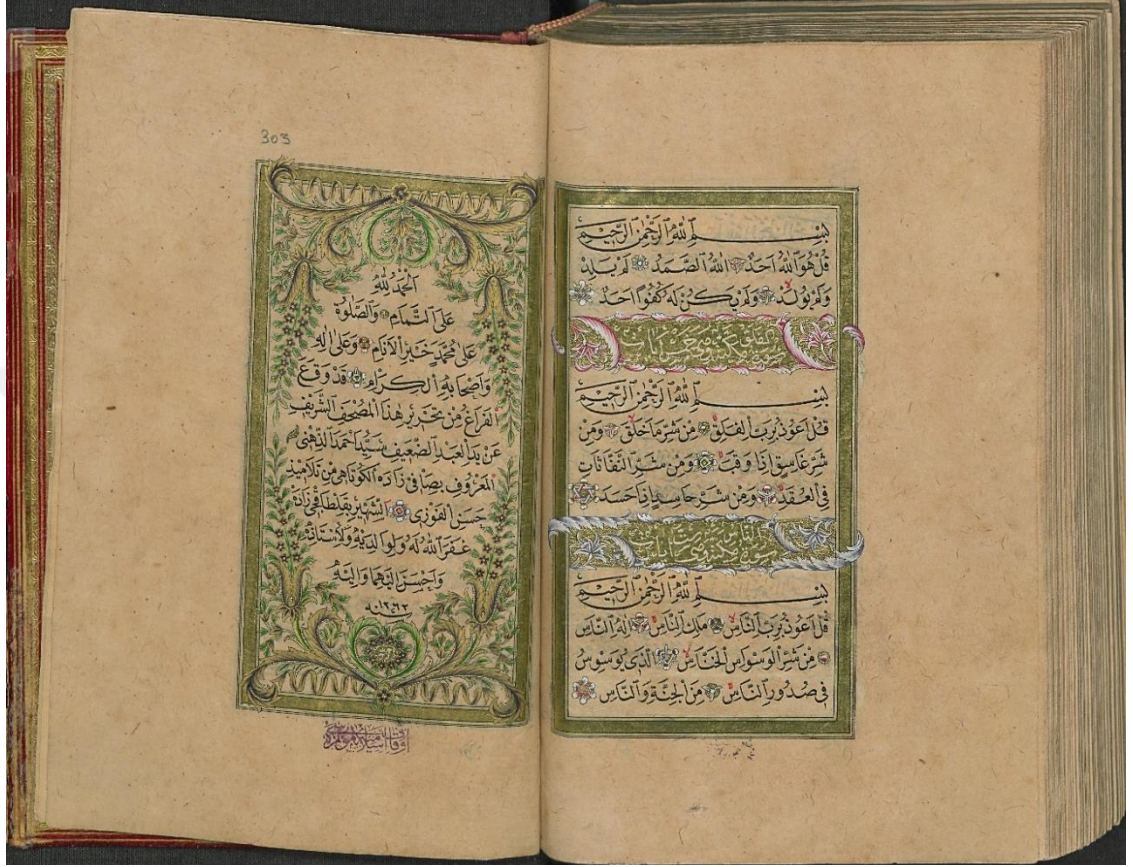 بِسْمِ اللّٰهِ الرَّحْمٰنِ الرَّحٖيمِ
قُلْ هُوَ اللّٰهُ اَحَدٌ اَللّٰهُ الصَّمَدُ لَمْ يَلِدْ
وَلَمْ يُولَدْ وَلَمْ يَكُنْ لَهُ كُفُوًا اَحَدٌ
سورة الفلق مكية وهي خمس آيات
بِسْمِ اللّٰهِ الرَّحْمٰنِ الرَّحٖيمِ
قُلْ اَعُوذُ بِرَبِّ الْفَلَقِ مِنْ شَرِّ مَا خَلَقَ وَمِنْ
شَرِّ غَاسِقٍ اِذَا وَقَبَ وَمِنْ شَرِّ النَّفَّاثَاتِ
فِى الْعُقَدِ وَمِنْ شَرِّ حَاسِدٍ اِذَا حَسَدَ
سورة الناس مكية وهي ست آيات
بِسْمِ اللّٰهِ الرَّحْمٰنِ الرَّحٖيمِ
قُلْ اَعُوذُ بِرَبِّ النَّاسِ مَلِكِ النَّاسِ اِلٰهِ النَّاسِ
مِنْ شَرِّ الْوَسْوَاسِ الْخَنَّاسِ اَلَّذٖى يُوَسْوِسُ
فٖى صُدُورِ النَّاسِ مِنَ الْجِنَّةِ وَالنَّاسِ
303
اَلْحَمْدُ لِلّٰهِ
عَلَى التَّمَامِ وَالصَّلٰوةُ
عَلٰى مُحَمَّدٍ خَيْرِ الْاَنَامِ وَعَلٰى اٰلِهِ
وَاَصْحَابِهِ الْكِرَامِ قَدْ وَقَعَ
الْفَرَاغُ مِنْ تَحْرِيرِ هٰذَا الْمُصْحَفِ الشَّرِيفِ
عَنْ يَدِ الْعَبْدِ الضَّعِيفِ سَيِّدْ اَحْمَدْ الذِّهْنِى
الْمَعْرُوفِ بِصَافِى زَادَه الْكُوتَاهِى مِنْ تَلَامِيذِ
حَسَنْ الْفَوْزِى الشَّهِيرِ بِقَلْطَاقْجِى زَادَه
غَفَرَ اللّٰهُ لَهُ وَلِوَالِدَيْهِ وَلِاُسْتَاذِهِ
وَاَحْسَنَ اِلَيْهِمَا وَاِلَيْهِ
سنه ١٢٦٢